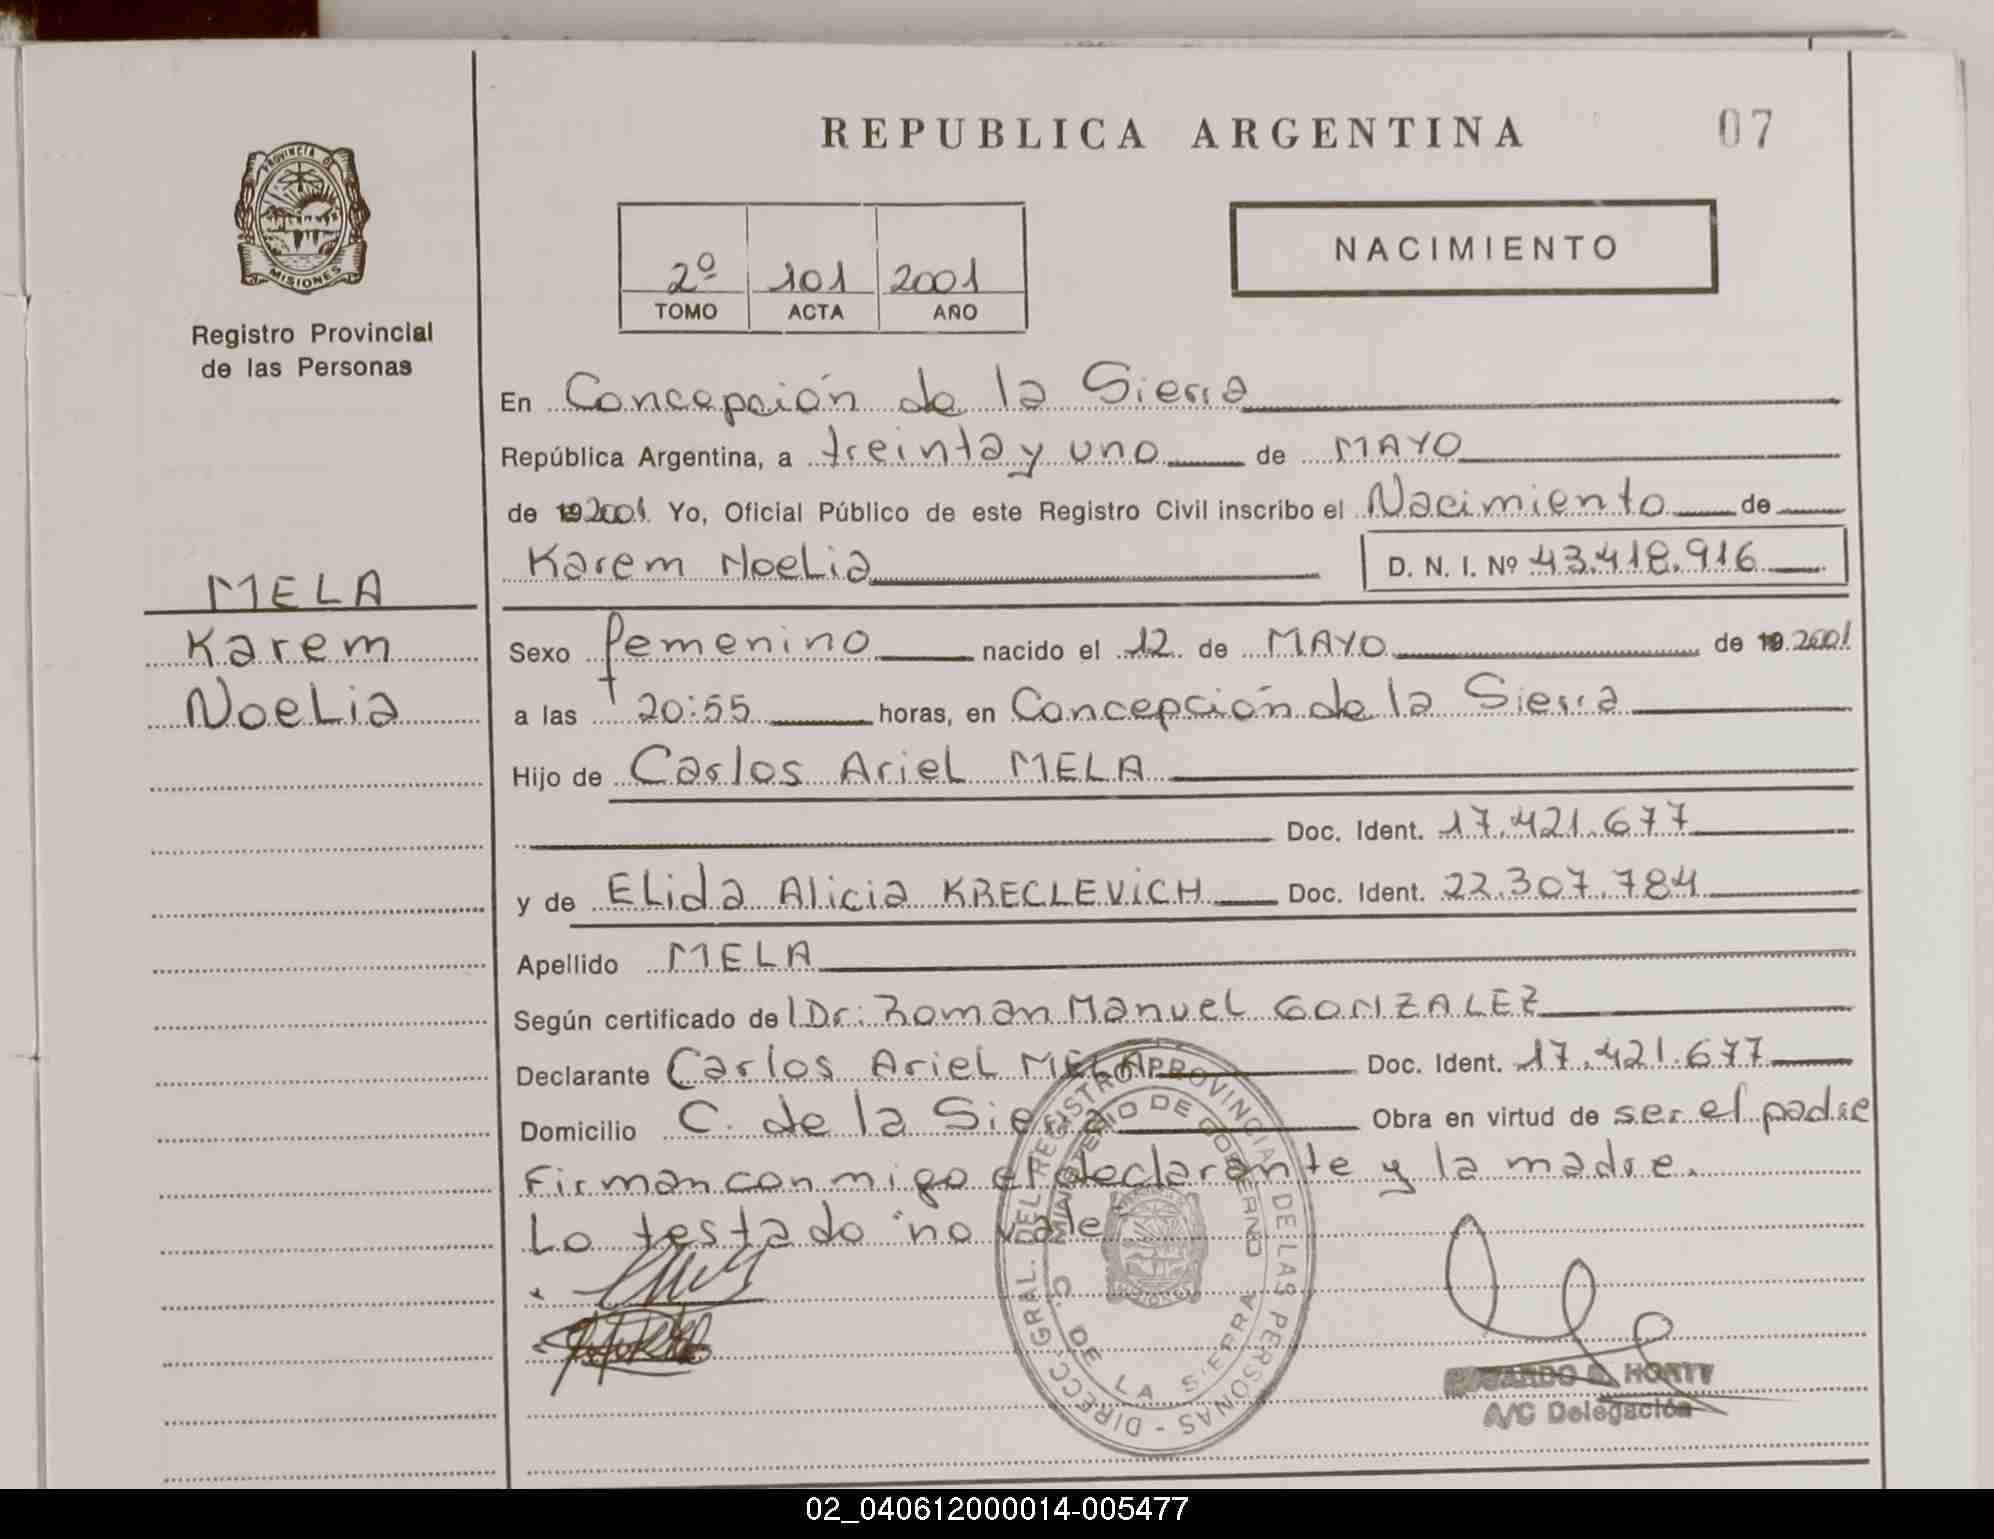 REPUBLICA ARGENTINA
07
PROVINCIA DE
MISIONES
Registro Provincial
de las Personas
2º 101 2001
TOMO ACTA AÑO
NACIMIENTO
En Concepción de la Sierra
República Argentina, a treinta y uno de MAYO
de 192001. Yo, Oficial Público de este Registro Civil inscribo el Nacimiento de
Karem Noelia
D. N. I. Nº 43.418.916
MELA
Karem
Noelia
Sexo femenino nacido el 12 de MAYO de 192001
a las 20:55 horas, en Concepción de la Sierra
Hijo de Carlos Ariel MELA
Doc. Ident. 17.421.677
y de Elida Alicia KRECLEVICH Doc. Ident. 22.307.784
Apellido MELA
Según certificado de Dr: Roman Manuel GONZALEZ
Declarante Carlos Ariel MELA Doc. Ident. 17.421.677
Domicilio C. de la Sierra Obra en virtud de ser el padre
Firman conmigo el declarante y la madre.
Lo testado "no vale"
DIRECC. GRAL. DEL REGISTRO PROVINCIAL DE LAS PERSONAS -
MINISTERIO DE GOBERNO
C. DE LA SIERRA
HORTY
A/C Delegación
02_040612000014-005477